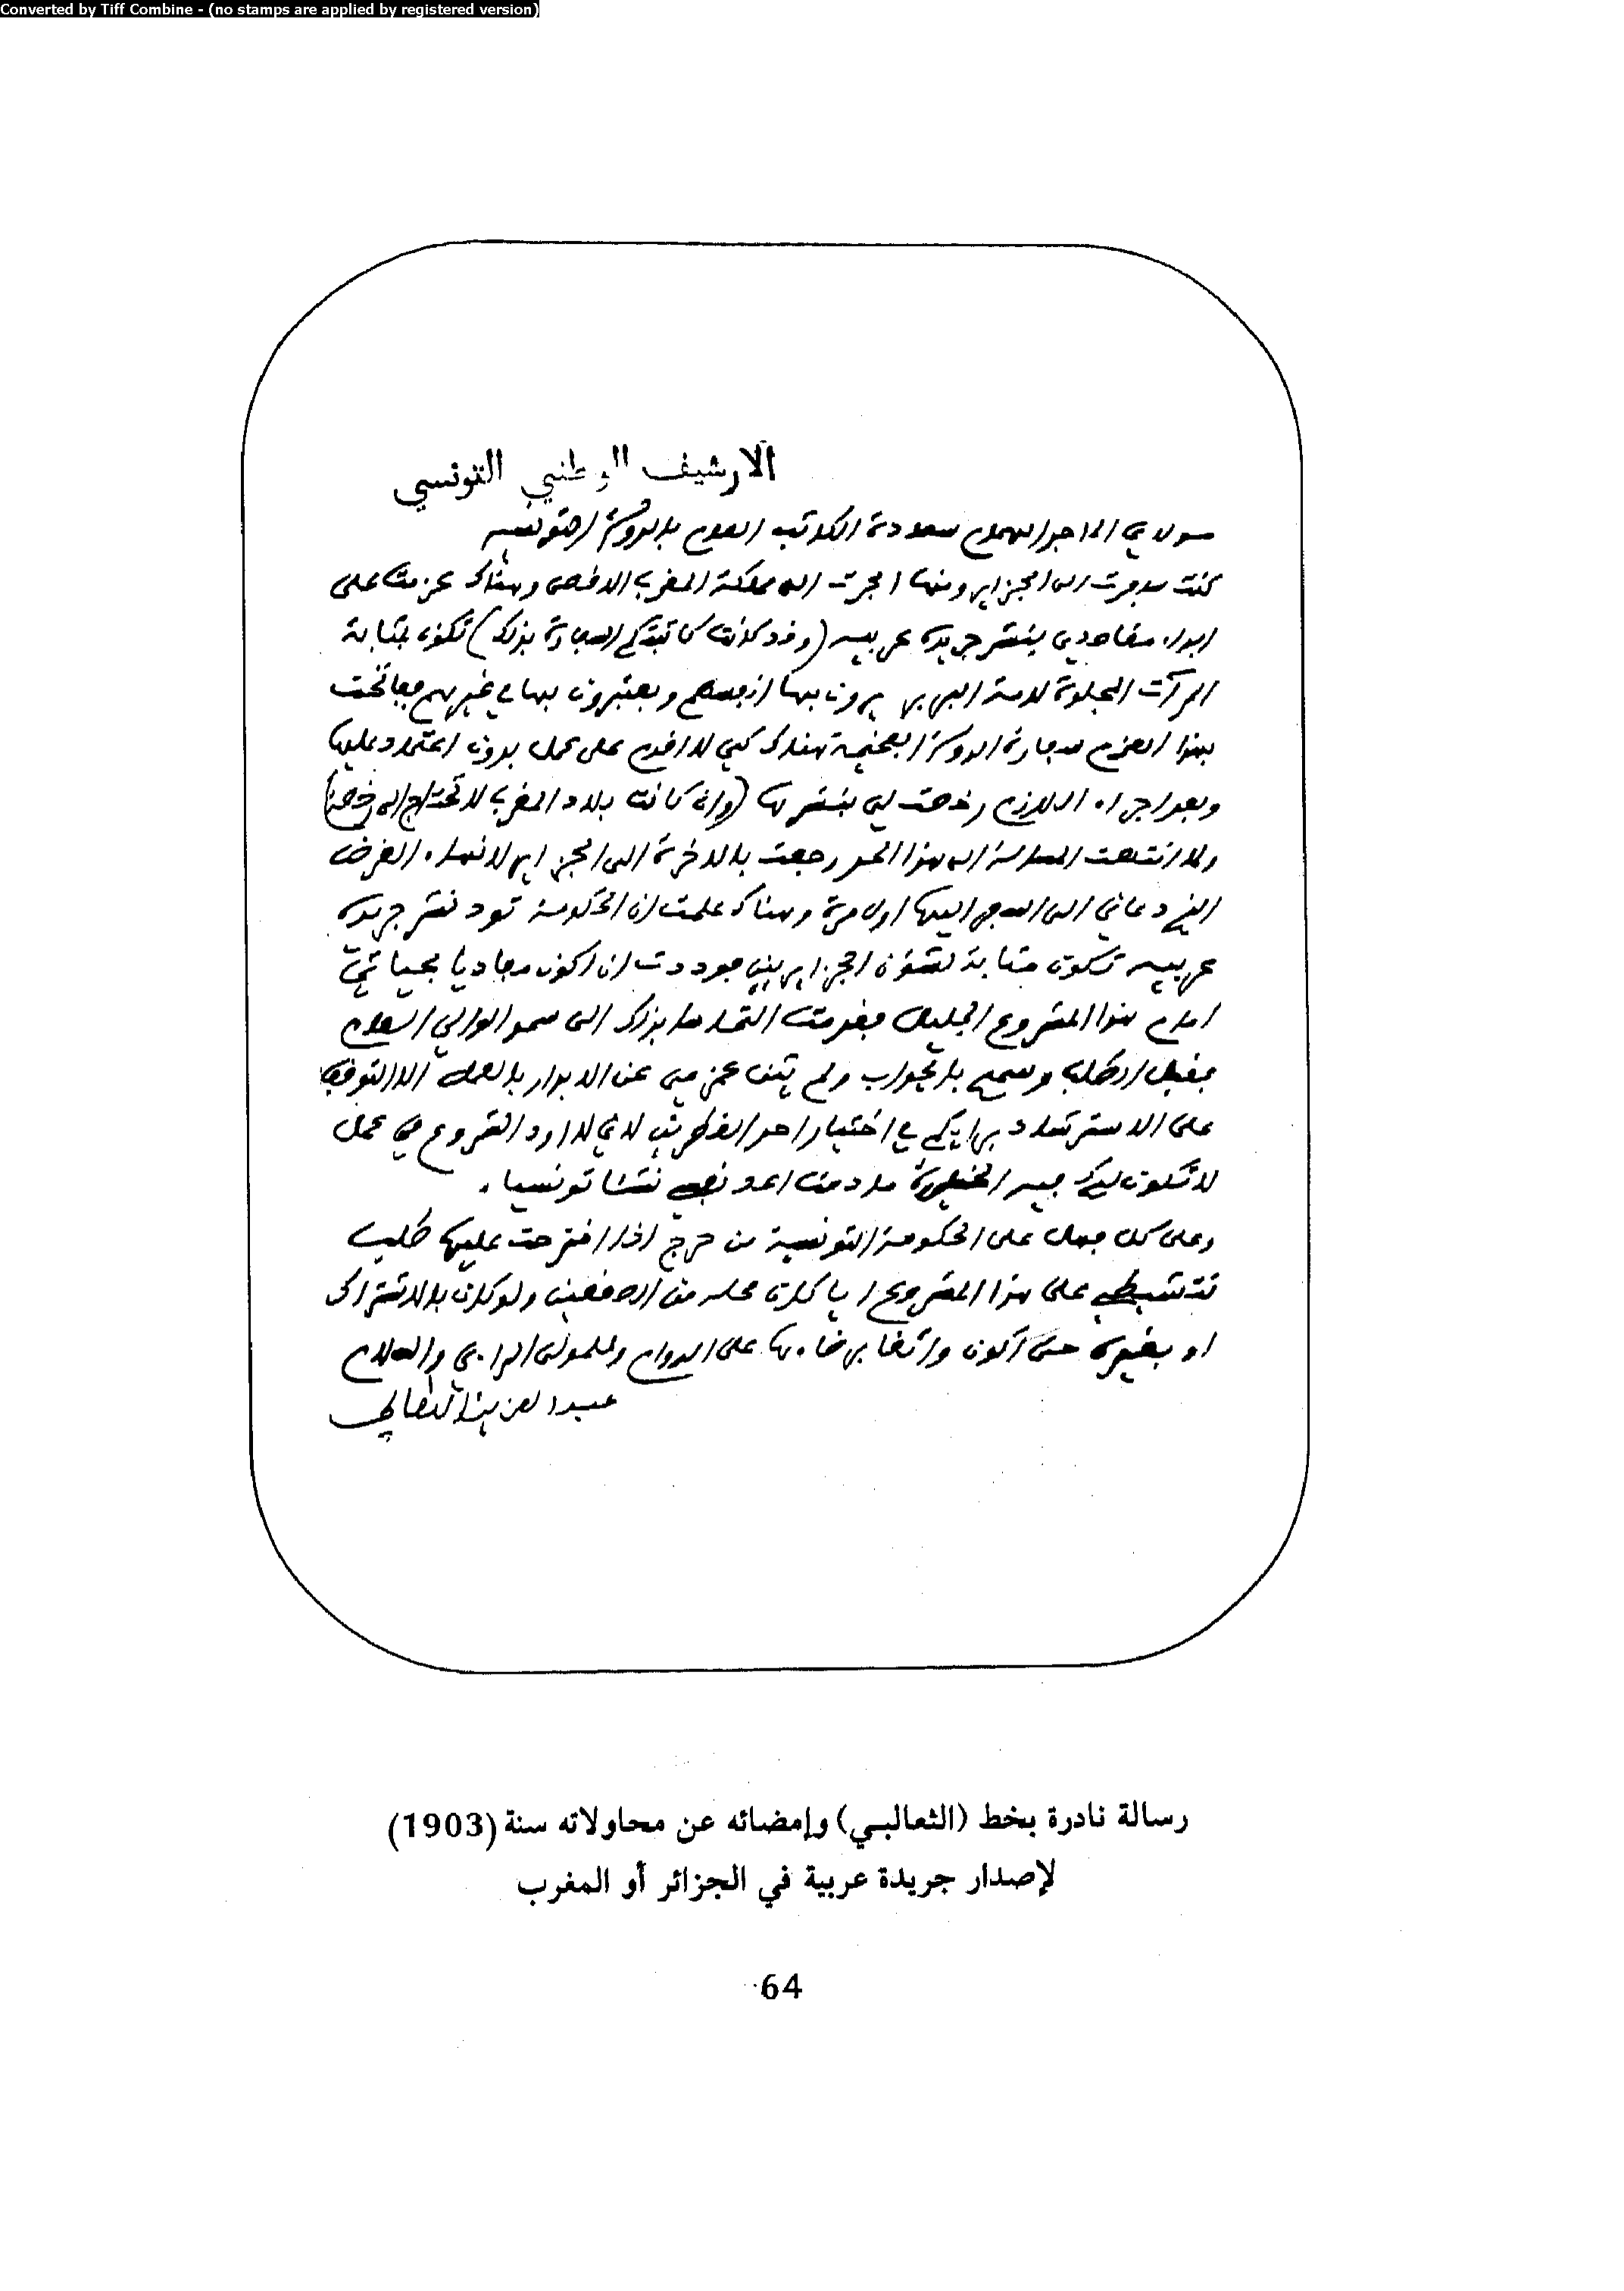 Converted by Tiff Combine - (no stamps are applied by registered version)
الارشيف الوطني التونسي
سعادة الكاتب العام بالدولة التونسية
كنت سافرت الى الجزاير ومنها ابحرت الى مملكة المغرب الاقصى وهناك عزمت على
ابداء مقاصدي بنشر جريدة عربية (وقد كانت كاتبتكم السفارة بذلك) تكون بمثابة
المرآت المجلوة لامة البربر يرون بها انفسهم ويعتبرون بها في غيرهم ففاتحت
بهذا العزم سفارة الدولة الفخيمة هناك كي لا اقدم على عمل بدون اعتماد عليها
وبعد اجراء اللازم رخصت لي بنشرها (وان كانت بلاد المغرب لا تحتاج الى رخصة)
ولما انتهت المسالة الى هذا الحد رجعت بالاخرة الى الجزاير لانهاء الغرض
الذي دعاني الى السفر اليها اول مرة وهناك علمت ان الحكومة تود نشر جريدة
عربية تكون بمثابة لشؤن الجزايريين فوددت ان اكون مفاديا بحياتي
امام هذا المشروع الجليل فقدمت التماسا بذلك الى سمو الوالي العام
فقبل الطلب وسمح بالجواب ولم يثن عزمي عن الابدار بالعمل الا التوقف
على الاسترشاد برايكم في اختيار احد القطرين لاني لا اود الشروع في عمل
لا تكون لكم فيه الخطورة ما دمت اعد نفسي نشئا تونسيا .
وعلى كل فهل على الحكومة التونسية من حرج اذا اقترحت عليها طلب
تنشيطي على هذا المشروع ايا كان محله من الصقعين ولو كان بالاشتراك
او بغيره حتى اكون واثقا برضاءها على الدوام وللمولى الراي والسلام
عبد العزيز الثعالبي
رسالة نادرة بخط (الثعالبي) وإمضائه عن محاولاته سنة (1903)
لإصدار جريدة عربية في الجزائر أو المغرب
64